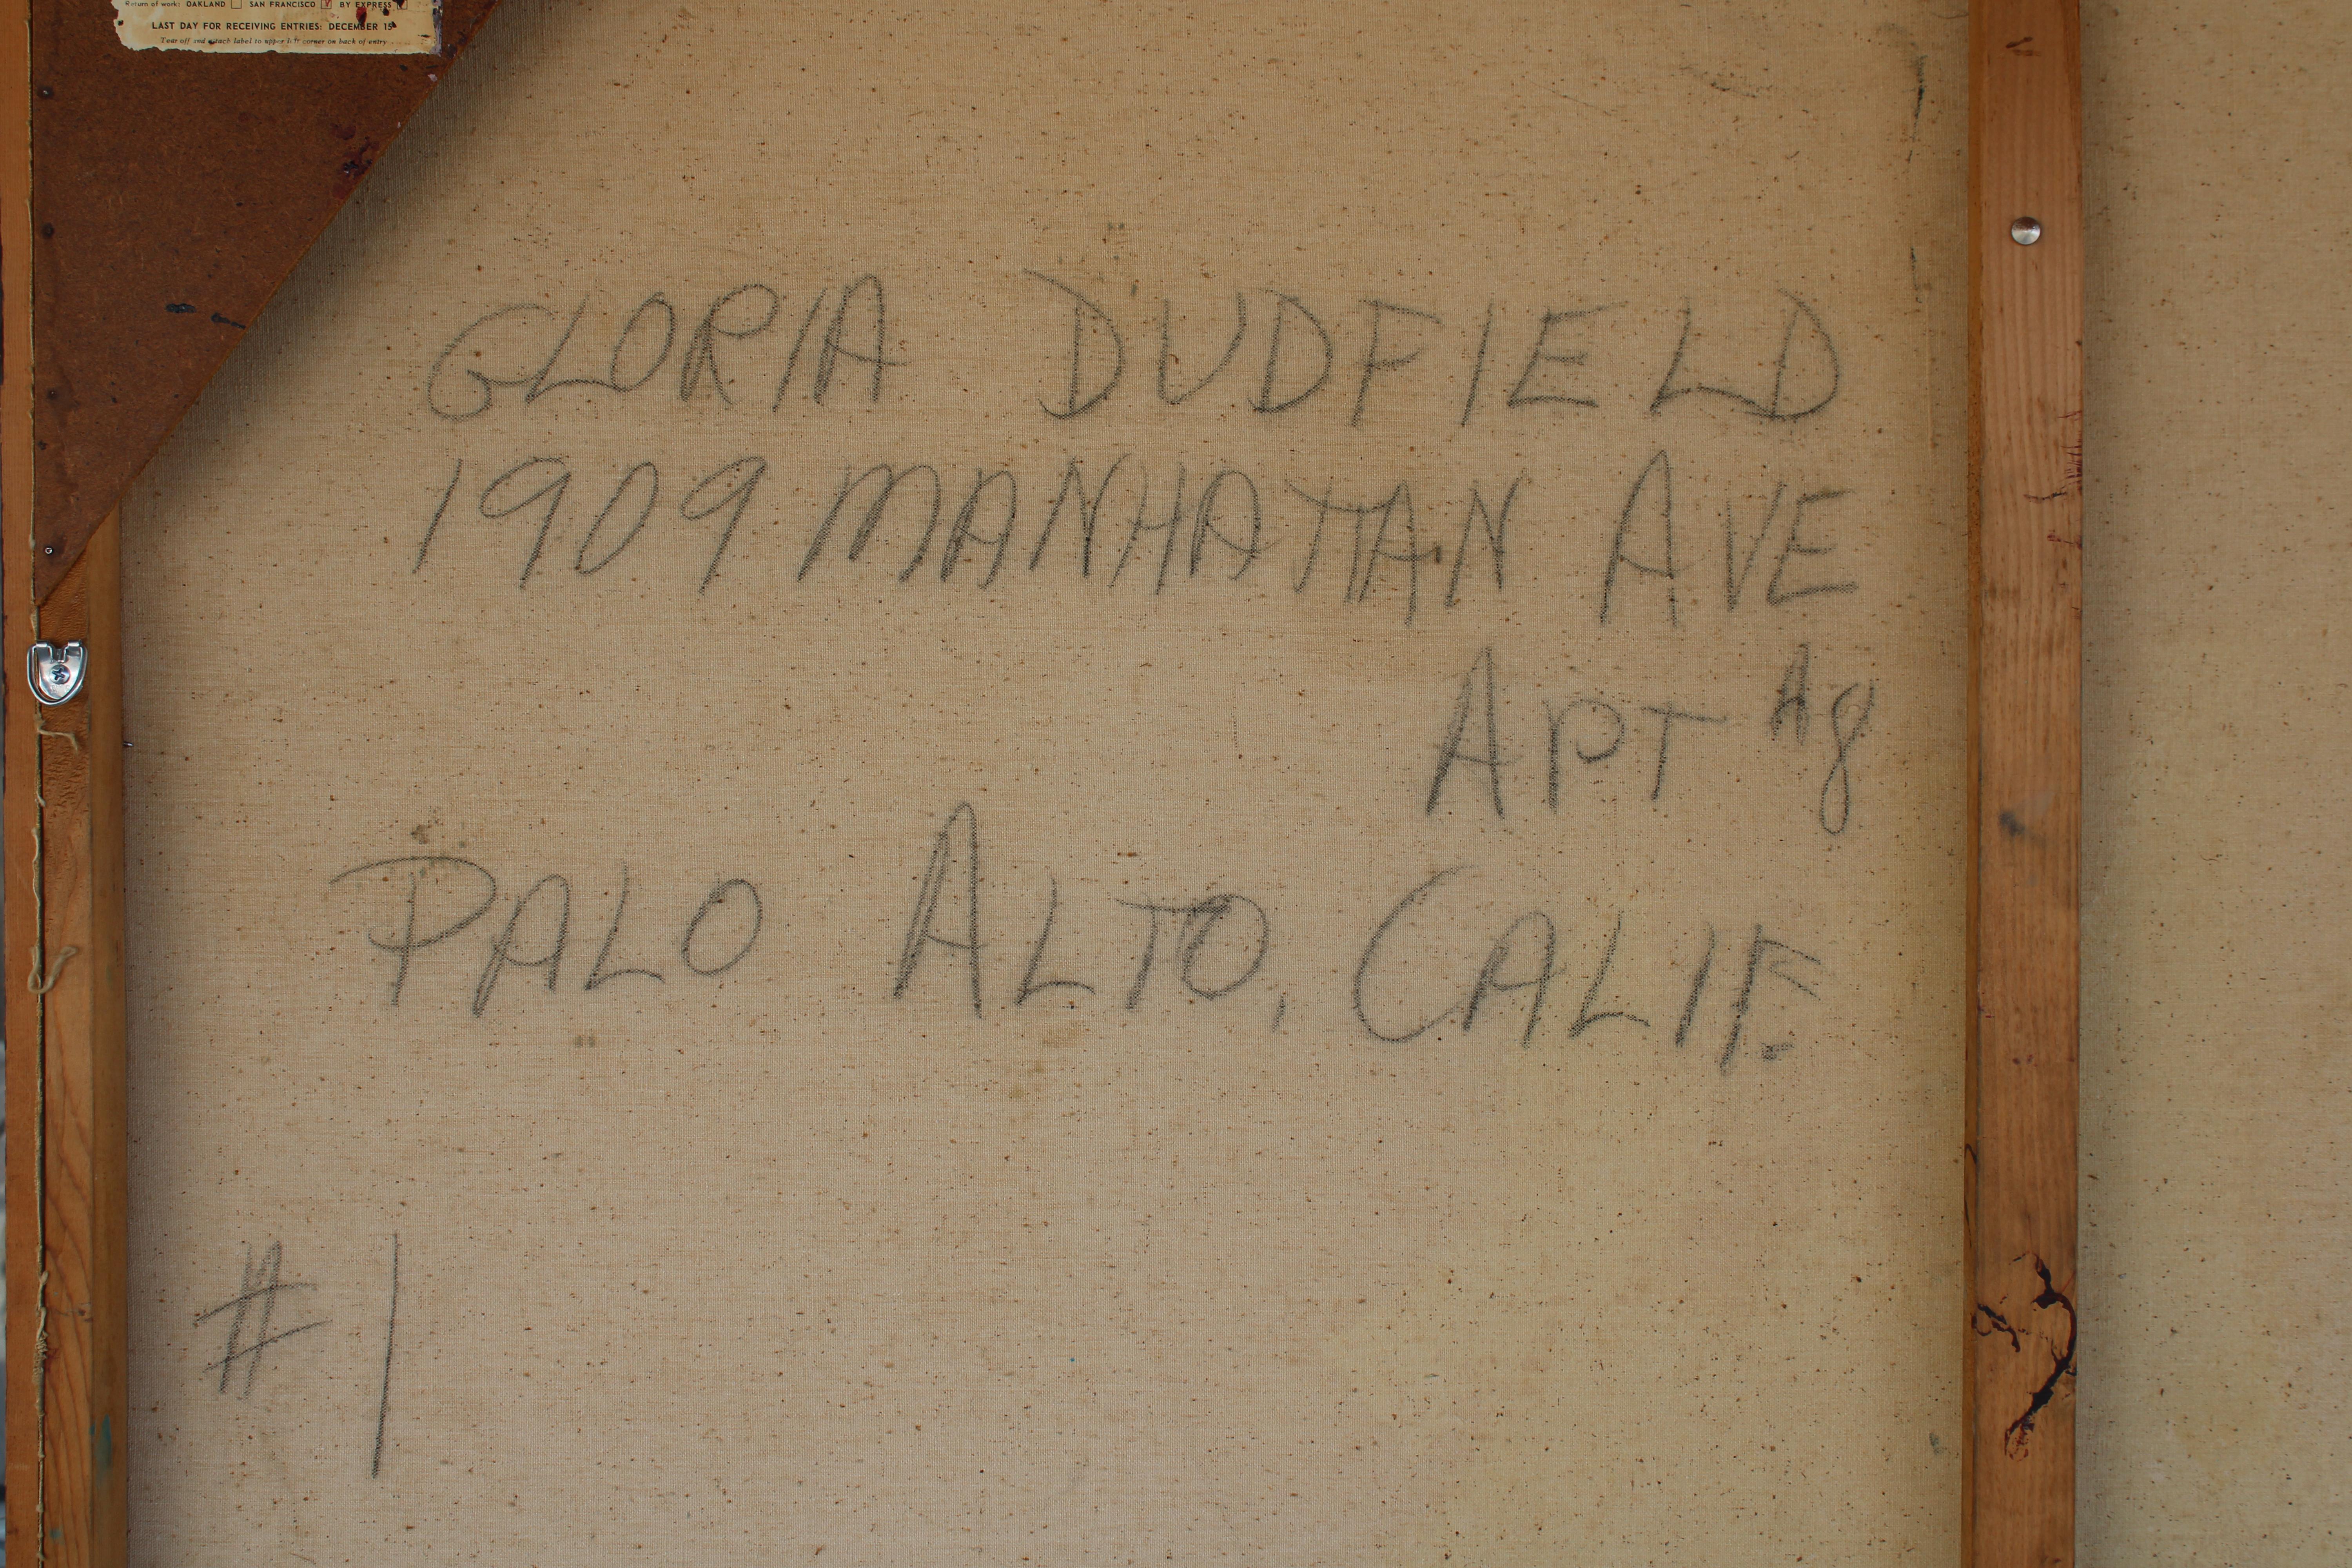 Return of work: OAKLAND SAN FRANCISCO BY EXPRESS
LAST DAY FOR RECEIVING ENTRIES: DECEMBER 15
Tear off and attach label to upper left corner on back of entry
GLORIA DUDFIELD
1909 MANHATTAN AVE
APT #8
PALO ALTO, CALIF.
#1